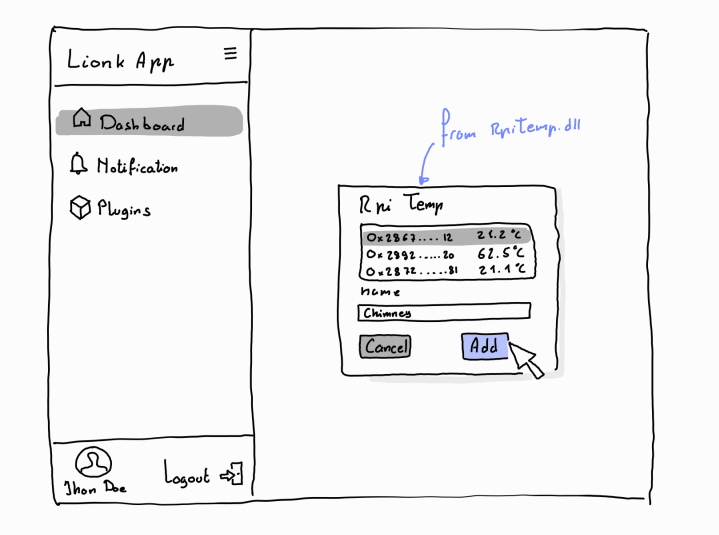 Lionk App
Dashboard
Notification
Plugins
Jhon Doe
Logout
from RpiTemp.dll
Rpi Temp
0x2867....12 21.2°C
0x2892.....20 62.5°C
0x2872.....81 21.1°C
name
Chimney
Cancel
Add